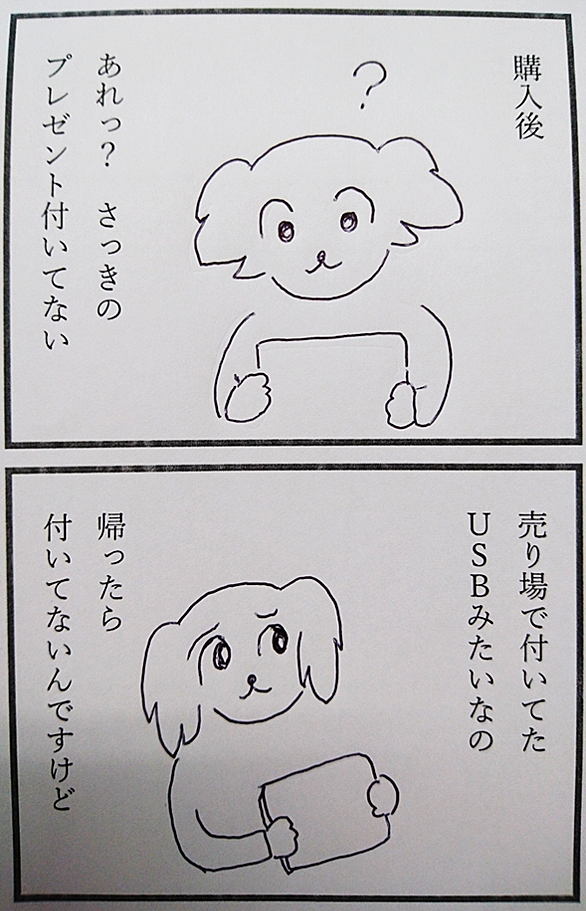 購入後
?
あれっ? さっきの
プレゼント付いてない
売り場で付いてた
USBみたいなの
帰ったら
付いてないんですけど